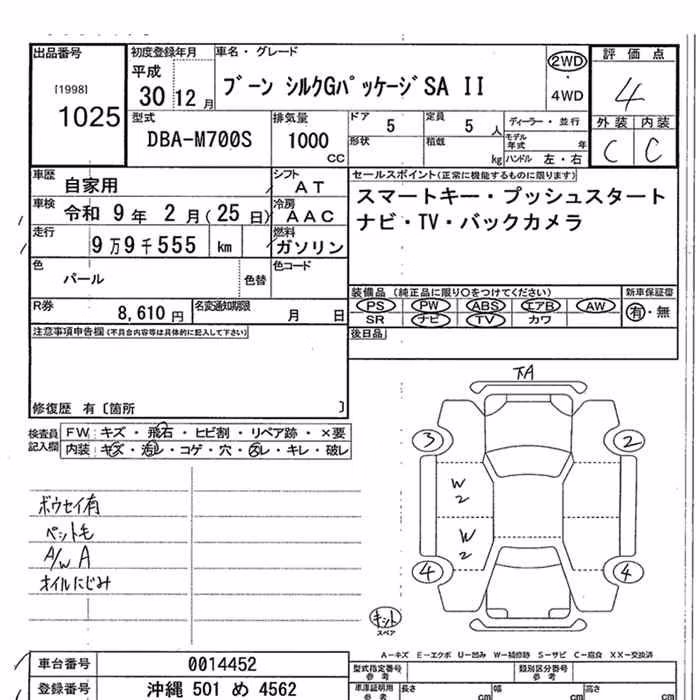 出品番号
[1998]
1025
初度登録年月
平成
30 12 月
車名・グレード
ブーン シルクGパッケージSA II
2WD
・
4WD
評価点
4
外装 内装
C C
型式
DBA-M700S
排気量
1000
CC
ドア
5
定員
5 人
形状
積載
kg
ディーラー・並行
モデル年式 年
ハンドル 左・右
車歴
自家用
シフト
AT
車検
令和 9年 2月(25日)
冷房
AAC
走行
9万9千555 km
燃料
ガソリン
色
パール
色替
色コード
R券
8,610 円
名変通知期限
月 日
セールスポイント(正常に機能するものに限ります)
スマートキー・プッシュスタート
ナビ・TV・バックカメラ
装備品 (純正品に限り○をつけてください)
PS PW ABS エアB AW
SR ナビ TV カワ
新車保証書
有・無
後日品
注意事項申告欄(不具合内容等は具体的に記入して下さい)
修復歴 有〔箇所 〕
検査員
記入欄
FW キズ・飛石・ヒビ割・リペア跡・×要
内装 キズ・汚レ・コゲ・穴・スレ・キレ・破レ
ボウセイ有
ペット毛
A/W A
オイルにじみ
3
2
W
2
W
2
4
4
キット
スペア
A-キズ E-エクボ U-凹み W-補修跡 S-サビ C-腐食 XX-交換済
車台番号
0014452
登録番号
沖縄 501 め 4562
型式指定番号
参考
類別区分番号
参考
車庫証明用
参考
長さ cm
幅 cm
高さ cm